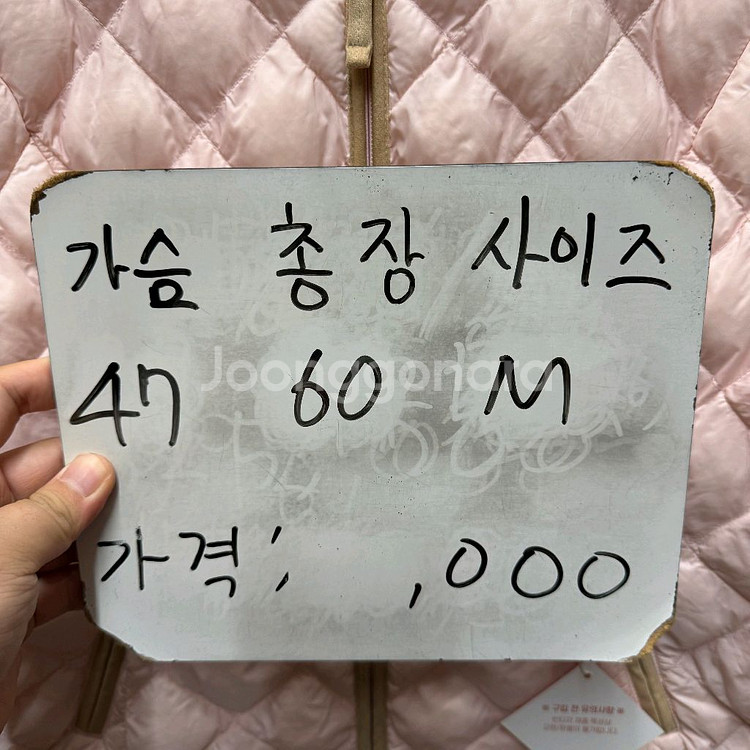 가슴 총장 사이즈
47 60 M
Joonggonara
가격: ,000
※ 구입 전 유의사항 ※